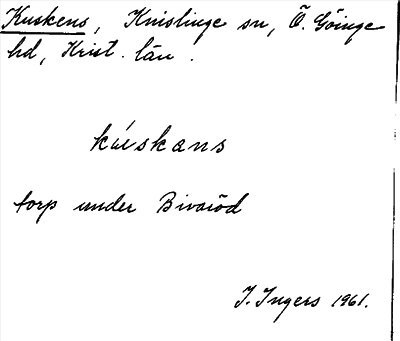 Kuskens, Knislinge sn, Ö. Göinge
hd, Krist. län.
kúskans
torp under Bivaröd
I. Ingers 1961.